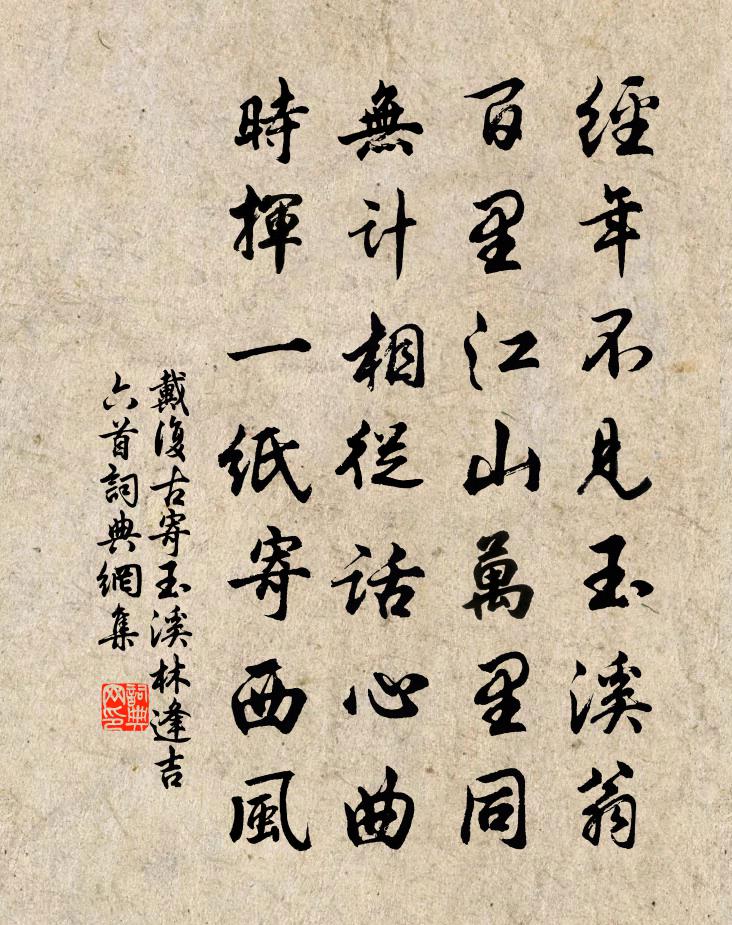 經年不見玉溪翁
百里江山萬里同
無計相從話心曲
時揮一紙寄西風
戴復古寄玉溪林逢吉
六首詞典網集
詞典
网印